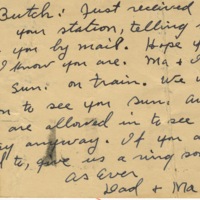 Butch: Just received
your station, telling
you by mail. Hope y
I know you are. Ma & I
Sun. on train. We w
on to see you sun. a
are allowed in to see
ay anyway. If you a
d to, give us a ring so
as ever
Dad & Ma